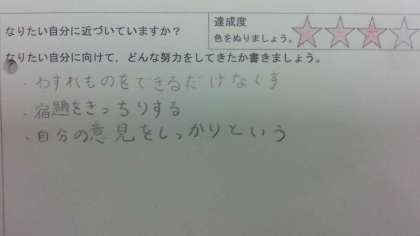 なりたい自分に近づいていますか?
達成度
色をぬりましょう。
なりたい自分に向けて、どんな努力をしてきたか書きましょう。
・わすれものをできるだけなくす
・宿題をきっちりする
・自分の意見をしっかりという